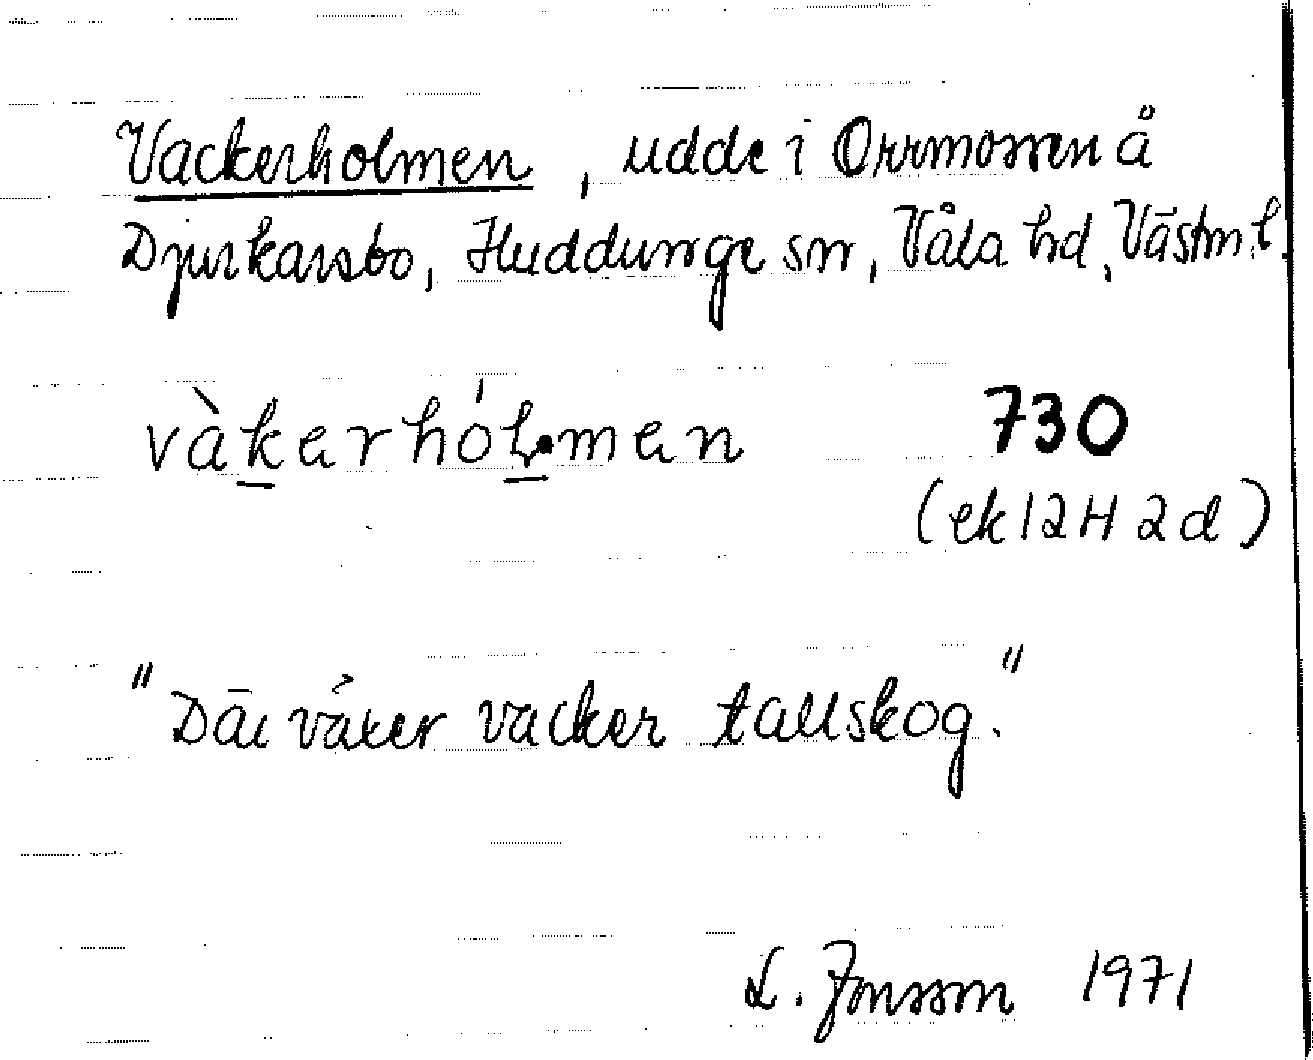 Vackerholmen, udde i Orrmossen å
Djurkarsbo, Huddunge sn, Våla hd, Västm.l.
vàkerhólmen 730
(ek 12H 2d)
"Där växer vacker tallskog."
L. Jonsson 1971